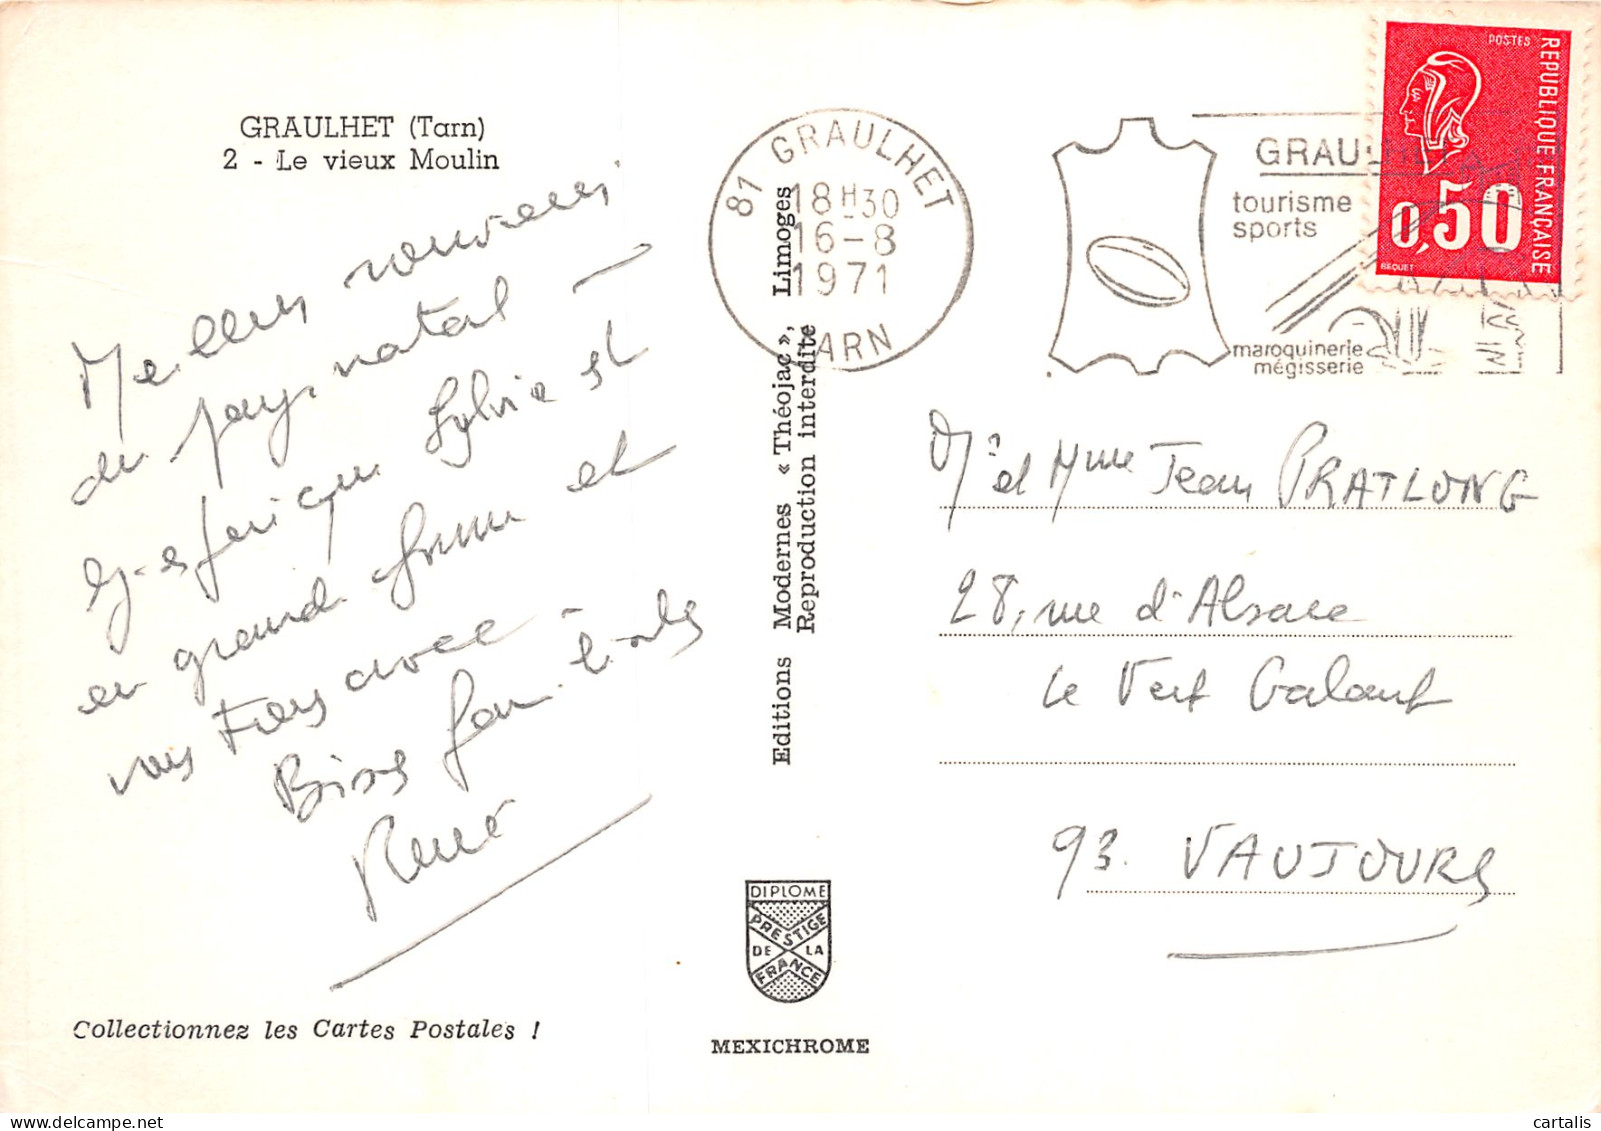 GRAULHET (Tarn)
2 - Le vieux Moulin
Meilleurs souvenirs
du pays natal -
espérique Sylvie est
en grande forme et
vous tous avec -
Bises familiales
René
Collectionnez les Cartes Postales !
Editions Modernes « Théojac », Limoges
Reproduction interdite
DIPLOME
PRESTIGE
DE LA
FRANCE
MEXICHROME
81 GRAULHET
18H30
16-8
1971
TARN
GRAULHET
tourisme
sports
maroquinerie
mégisserie
POSTES
REPUBLIQUE FRANÇAISE
0,50
BEQUET
Mr et Mme Jean PRATLONG
28, rue d'Alsace
Le Vert Galant
93. VAUJOURS
cartalis